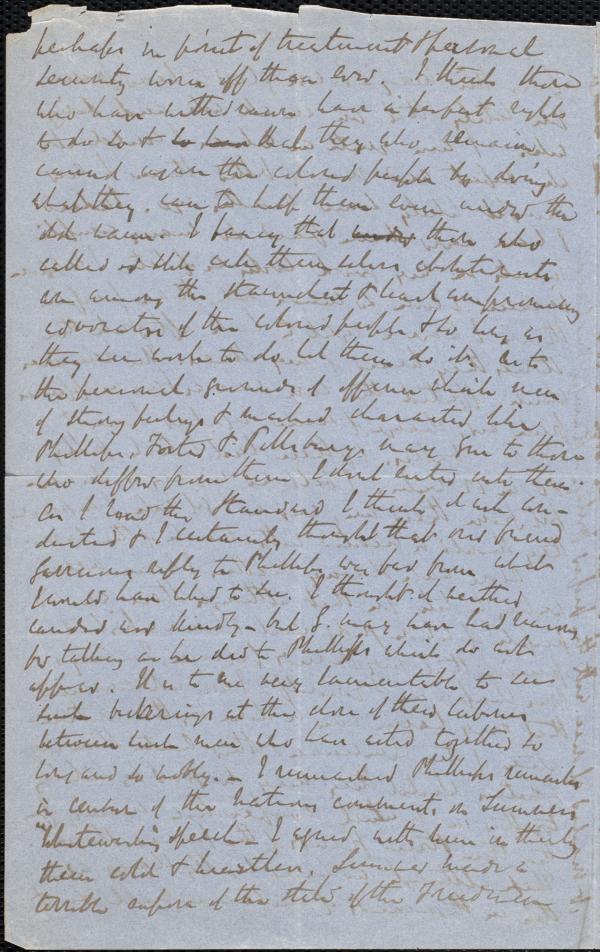 perhaps in point of treatment & personal
security worse off than ever. I think those
who have withdrawn have a perfect right
to do so & to have that they who remain
cannot injure the colored people by doing
what they can to help them even under the
old name. I fancy that under those who
called or still call themselves abolitionists
are among the staunchest & least compromising
advocates of the colored people & so long as
they see work to do let them do it. As to
the personal grounds of offence which men
of strong feelings & marked character like
Phillips, Foster & Pillsbury may give to those
who differ from them I don't enter into them.
As I read the Standard I think it well con-
ducted & I certainly thought that our friend
Garrisons reply to Phillips was far from what
I would have liked to see. I thought it neither
candid nor kindly - but G. may have had reasons
for talking as he did to Phillips which do not
appear. It is to me very lamentable to see
such bickerings at the close of their labours
between such men who have acted together so
long and so nobly. - I remarked Phillips remarks
in censure of the Nations comments on Sumners
"Whitewashing" speech - I agreed with him in thinking
them cold & heartless. Sumner made a
terrible expose of the state of the Freedmen